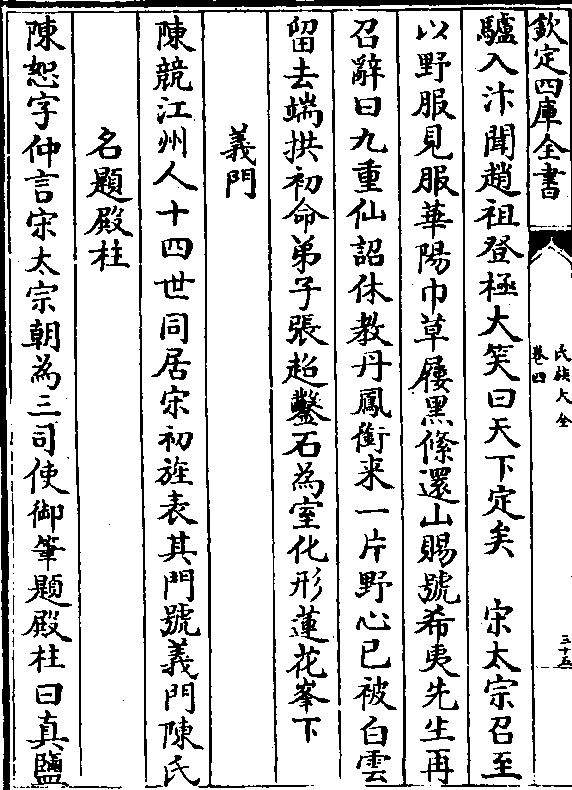 欽定四庫全書
氏族大全
卷四
三十五
驢入汴聞趙祖登極大笑曰天下定矣　宋太宗召至
以野服見服華陽巾草屨黑絛還山賜號希夷先生再
召辭曰九重仙詔休教丹鳳銜来一片野心已被白雲
留去端拱初命弟子張超鑿石為室化形蓮花峯下
義門
陳兢江州人十四世同居宋初旌表其門號義門陳氏
名題殿柱
陳恕字仲言宋太宗朝為三司使御筆題殿柱曰真鹽